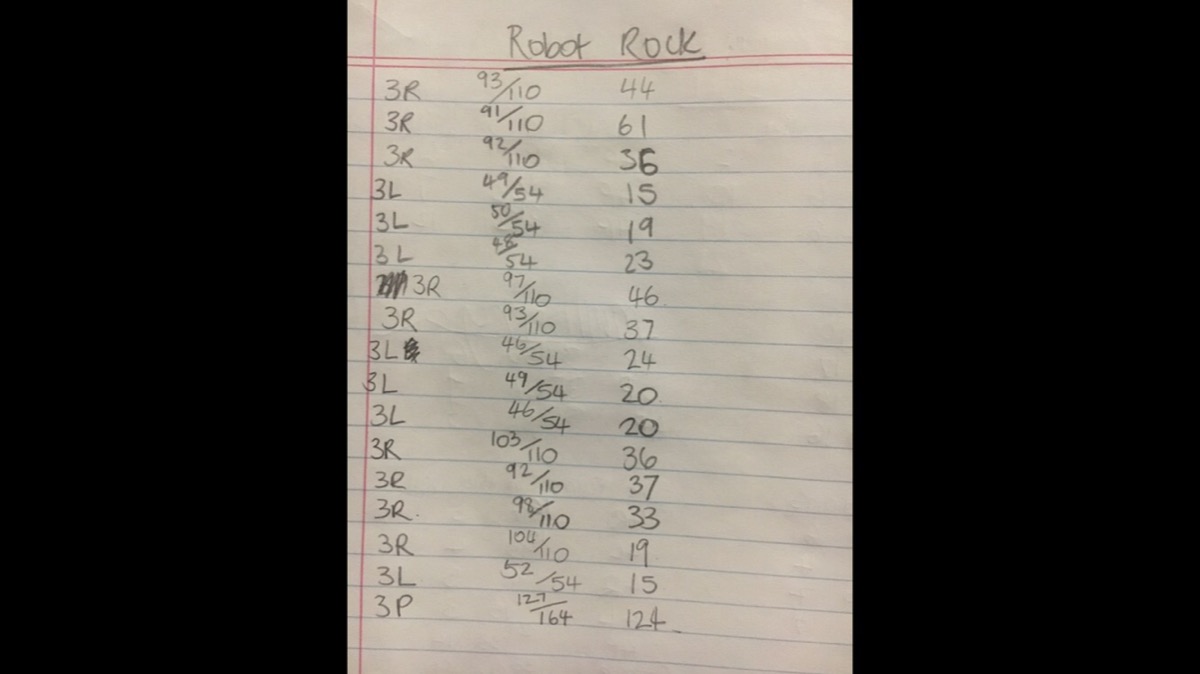 Robot Rock
3R 93/110 44
3R 91/110 61
3R 92/110 36
3L 49/54 15
3L 50/54 19
3L 48/54 23
3R 97/110 46
3R 93/110 37
3L 46/54 24
3L 49/54 20
3L 46/54 20
3R 103/110 36
3R 92/110 37
3R. 98/110 33
3R 104/110 19
3L 52/54 15
3P 127/164 124